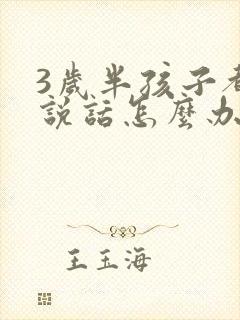 3歲半孩子
說話怎麼办
王玉海